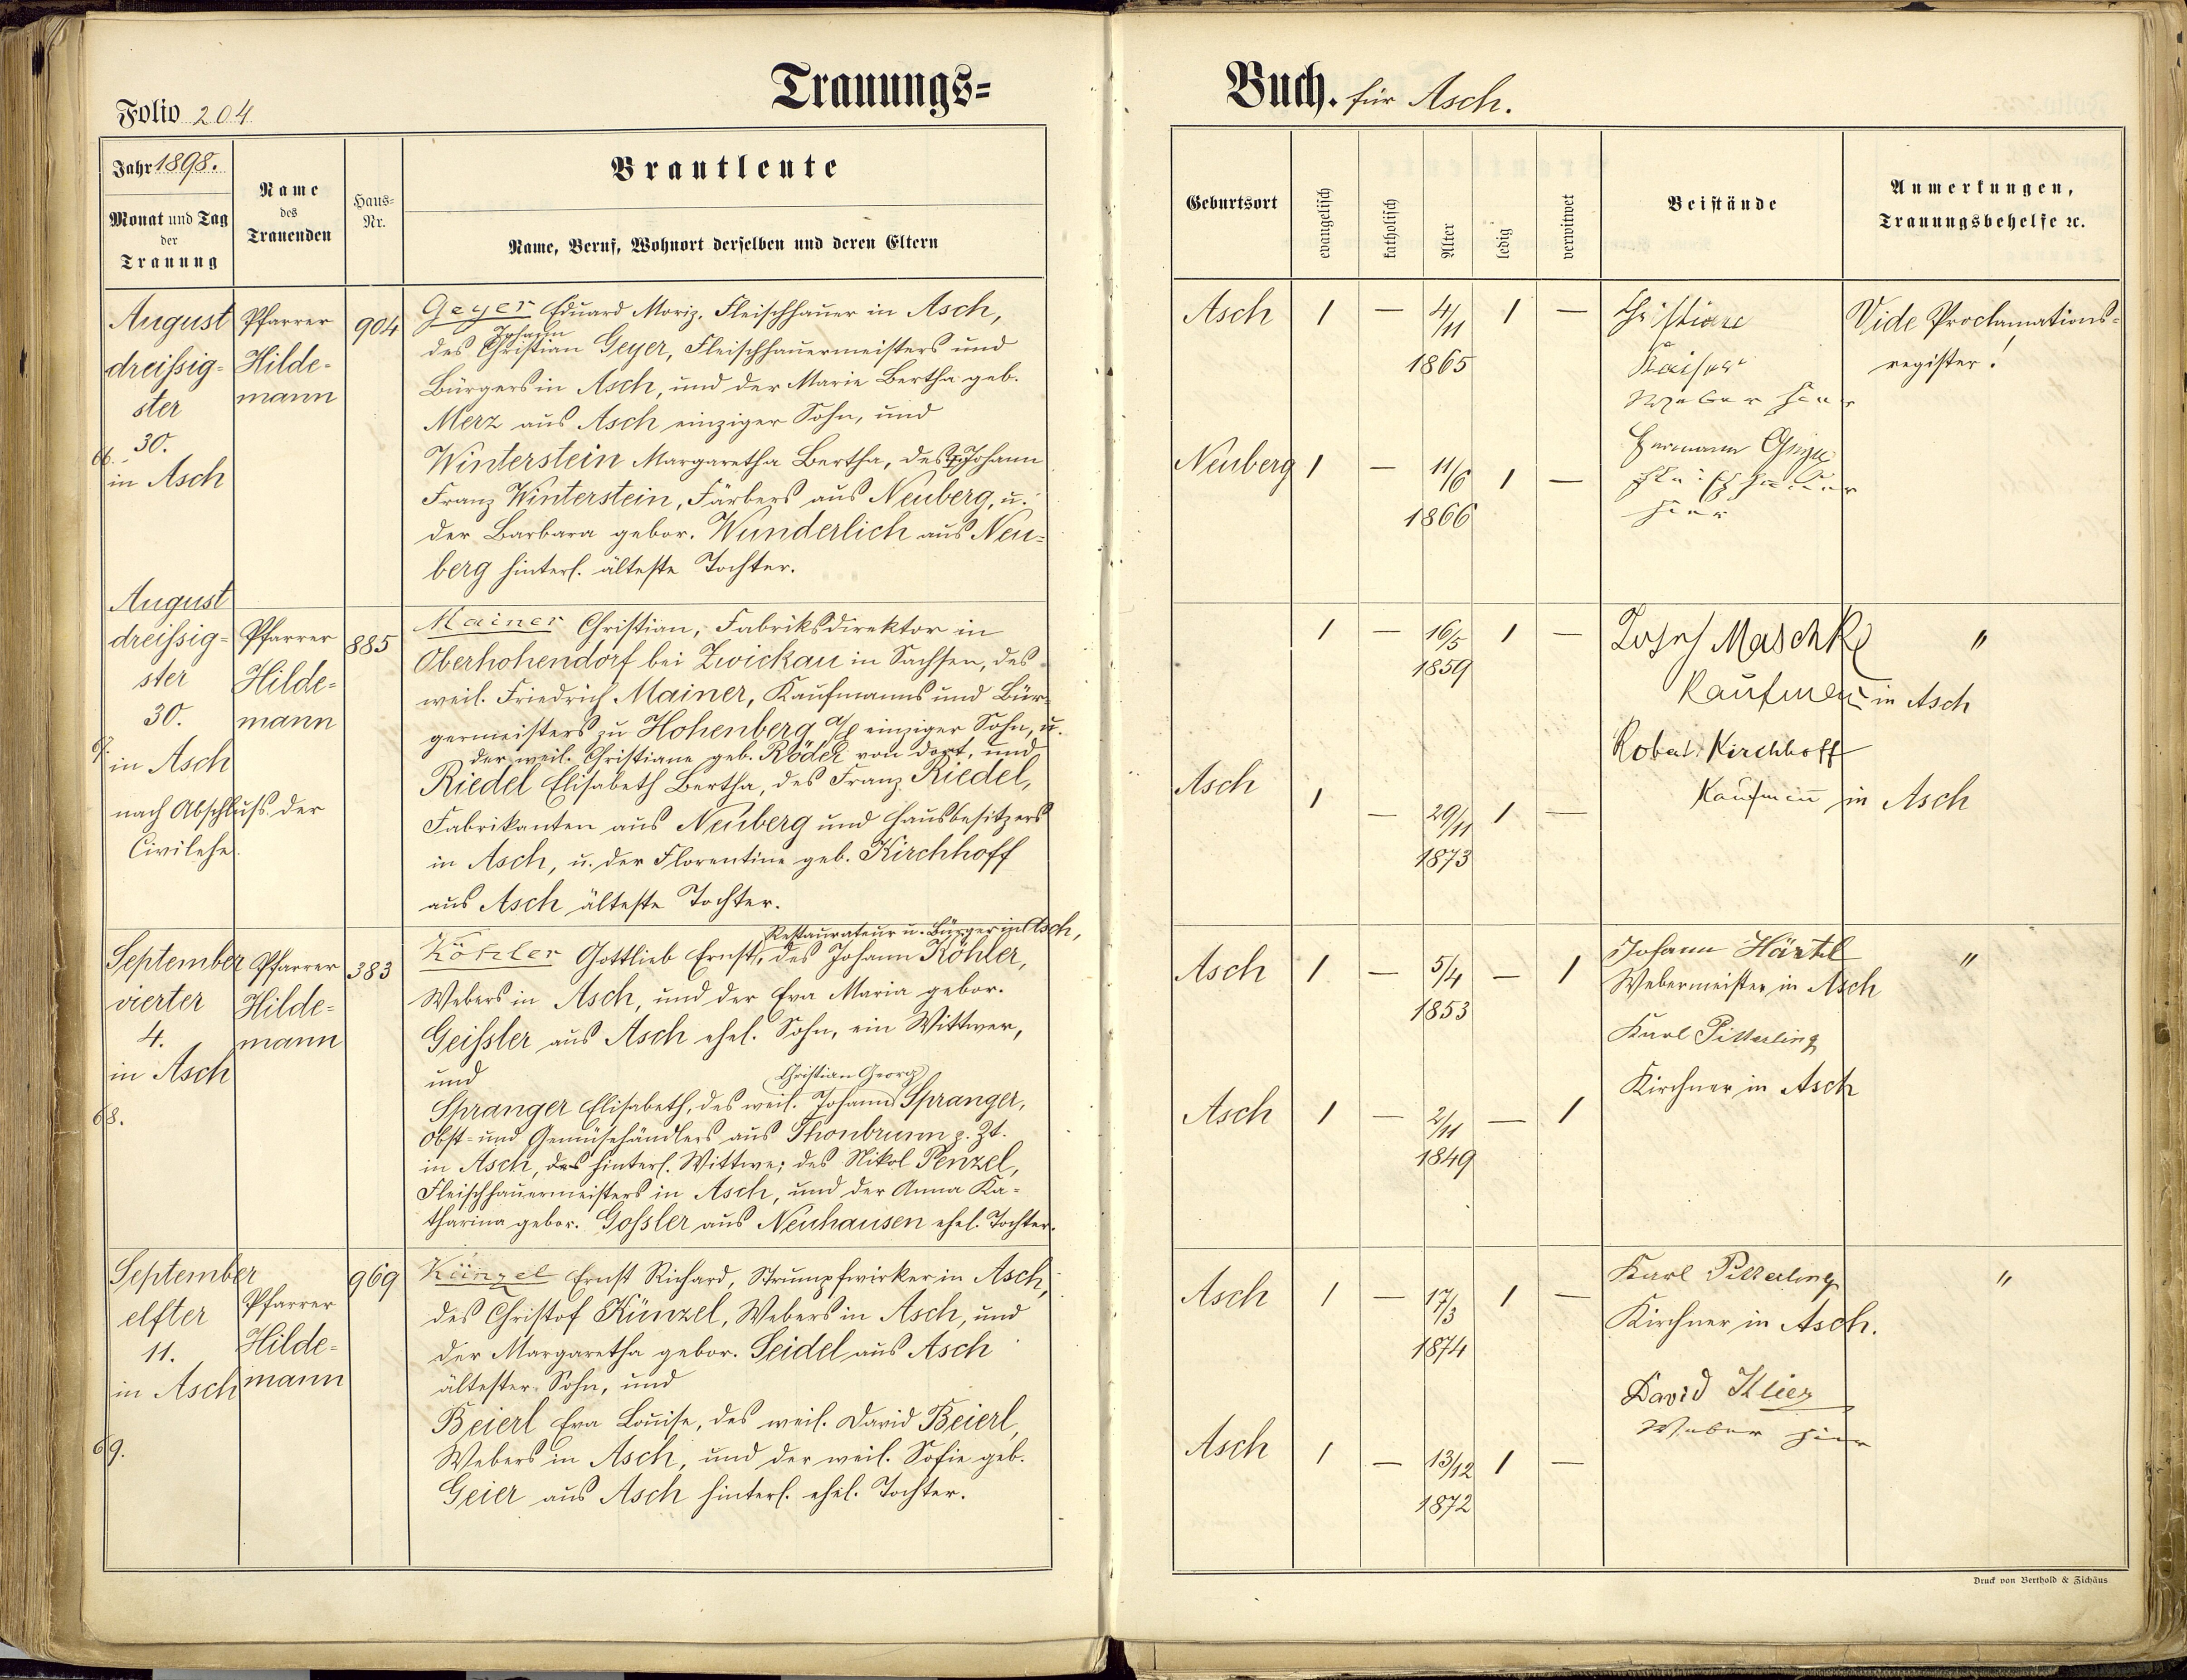 Trauungs=
Folio 204
Jahr 1898.
Monat und Tag
der
Trauung
Name
des
Trauenden
Haus=
Nr.
Brautleute
Name, Beruf, Wohnort derselben und deren Eltern
August
dreißig=
ster
30.
66.
in Asch
Pfarrer
Hilde=
mann
904
Geyer Eduard Moriz, Fleischhauer in Asch,
Johann
des Christian Geyer, Fleischhauermeisters und
Bürgers in Asch, und der Marie Bertha geb.
Merz aus Asch einziger Sohn, und
Winterstein Margaretha Bertha, des † Johann
Franz Winterstein, Färbers aus Neuberg, u.
der Barbara gebor. Wunderlich aus Neu=
berg hinterl. älteste Tochter.
August
dreißig=
ster
30.
67.
in Asch
nach Abschluß der
Civilehe.
Pfarrer
Hilde=
mann
885
Mainer Christian, Fabriksdirektor in
Oberhohendorf bei Zwickau in Sachsen, des
weil. Friedrich Mainer, Kaufmanns und Bür=
germeisters zu Hohenberg a/E einziger Sohn, u.
der weil. Christiane geb. Röder von dort, und
Riedel Elisabeth Bertha, des Franz Riedel,
Fabrikanten aus Neuberg und Hausbesitzers
in Asch, u. der Florentine geb. Kirchhoff
aus Asch älteste Tochter.
September
vierter
4.
in Asch
68.
Pfarrer
Hilde=
mann
383
Restaurateur u. Bürger in Asch,
Köhler Gottlieb Ernst, des Johann Köhler,
Webers in Asch, und der Eva Maria gebor.
Geißler aus Asch ehel. Sohn, ein Wittwer,
und
Christian Georg
Spranger Elisabeth, des weil. Johann Spranger,
Obst= und Gemüsehändlers aus Thonbrunn z. Zt.
in Asch, des hinterl. Wittwe; des Nikol Penzel,
Fleischhauermeisters in Asch, und der Anna Ka=
tharina gebor. Goßler aus Neuhausen ehel. Tochter.
September
elfter
11.
in Asch
69.
Pfarrer
Hilde=
mann
969
Künzel Ernst Richard, Strumpfwirker in Asch,
des Christof Künzel, Webers in Asch, und
der Margaretha gebor. Seidel aus Asch
ältester Sohn, und
Beierl Eva Louise, des weil. David Beierl,
Webers in Asch, und der weil. Sofie geb.
Geier aus Asch hinterl. ehel. Tochter.
Buch. für Asch.
Geburtsort
evangelisch
katholisch
Alter
ledig
verwitwet
Beistände
Anmerkungen,
Trauungsbehelfe ꝛc.
Asch 1 — 4/11 1 —
1865
Christian
Kaiser
Weber hier
Vide Proclamations=
register!
Neuberg 1 — 11/6 1 —
1866
Hermann Geyer
Fleischhauer
hier
1 — 16/5 1 —
1859
Josef Maschke
Kaufmann in Asch
"
Robert Kirchhoff
Kaufmann in Asch
Asch 1 — 29/11 1 —
1873
Asch 1 — 5/4 — 1
1853
Johann Härtl
Webermeister in Asch
"
Karl Pitterling
Kirchner in Asch
Asch 1 — 2/11 — 1
1849
Asch 1 — 17/3 1 —
1874
Karl Pitterling
Kirchner in Asch.
"
David Klier
Weber hier
Asch 1 — 13/12 1 —
1872
Druck von Berthold & Zichäus